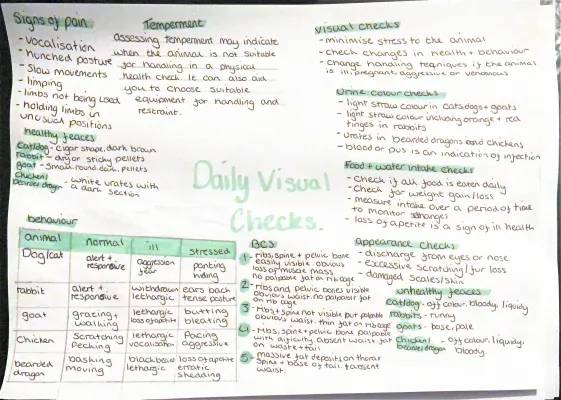 Signs of pain
- vocalisation
- hunched posture
- slow movements
- limping
- limbs not being used
- holding limbs in
unusual positions
Temperment
assessing temperment may indicate
when the animal is not suitable
for handling in a physical
health check. It can also aid
you to choose suitable
equipment for handling and
restraint.
visual checks
- minimise stress to the animal
- check changes in health + behaviour
- change handling teqniques if the animal
is ill, pregnant, aggressive or venomous
Urine colour checks
- light straw colour in cats, dogs + goats
- light straw colour including orange + red
tinges in rabbits
- urates in bearded dragons and chickens
- blood or pus is an indication of infection
healthy feaces
cat/dog - cigar shape, dark brown
rabbit - dry or sticky pellets
goat - small, round, dark, pellets
chicken/
bearded dragon - white urates with
a dark section
Daily Visual
Checks.
Food + water intake checks
- check if all food is eaten daily
- check for weight gain/loss
- measure intake over a period of time
to monitor changes
- loss of apetite is a sign of ill health
behaviour
animal normal ill stressed
Dog/cat alert + responsive aggression fear panting hiding
rabbit alert + responsive withdrawn lethargic ears back tense posture
goat grazing + walking lethargic loss of apetite butting bleating
chicken scratching pecking lethargic vocalisation pacing aggressive
bearded dragon basking moving black beard lethargic loss of apetite erratic shedding
BCS
1 - ribs, spine + pelvic bone
easily visible obvious
loss of muscle mass
no palpable fat on rib cage
2 - ribs and pelvic bones visible
obvious waist, no palpable fat
on rib cage
3 - ribs + spine not visible but palpable
obvious waist. thin fat on ribcage
4 - ribs, spine + pelvic bone palpable
with dificulty, absent waist, fat
on waist + tail
5 - massive fat deposits on thorax
spine + base of tail. absent
waist.
appearance checks
- discharge from eyes or nose
- excessive scratching/fur loss
- damaged scales/skin
unhealthy feaces
cat/dog - off colour, bloody, liquidy
rabbits - runny
goats - loose, pale
chicken/
bearded dragon - off colour, liquidy,
bloody.